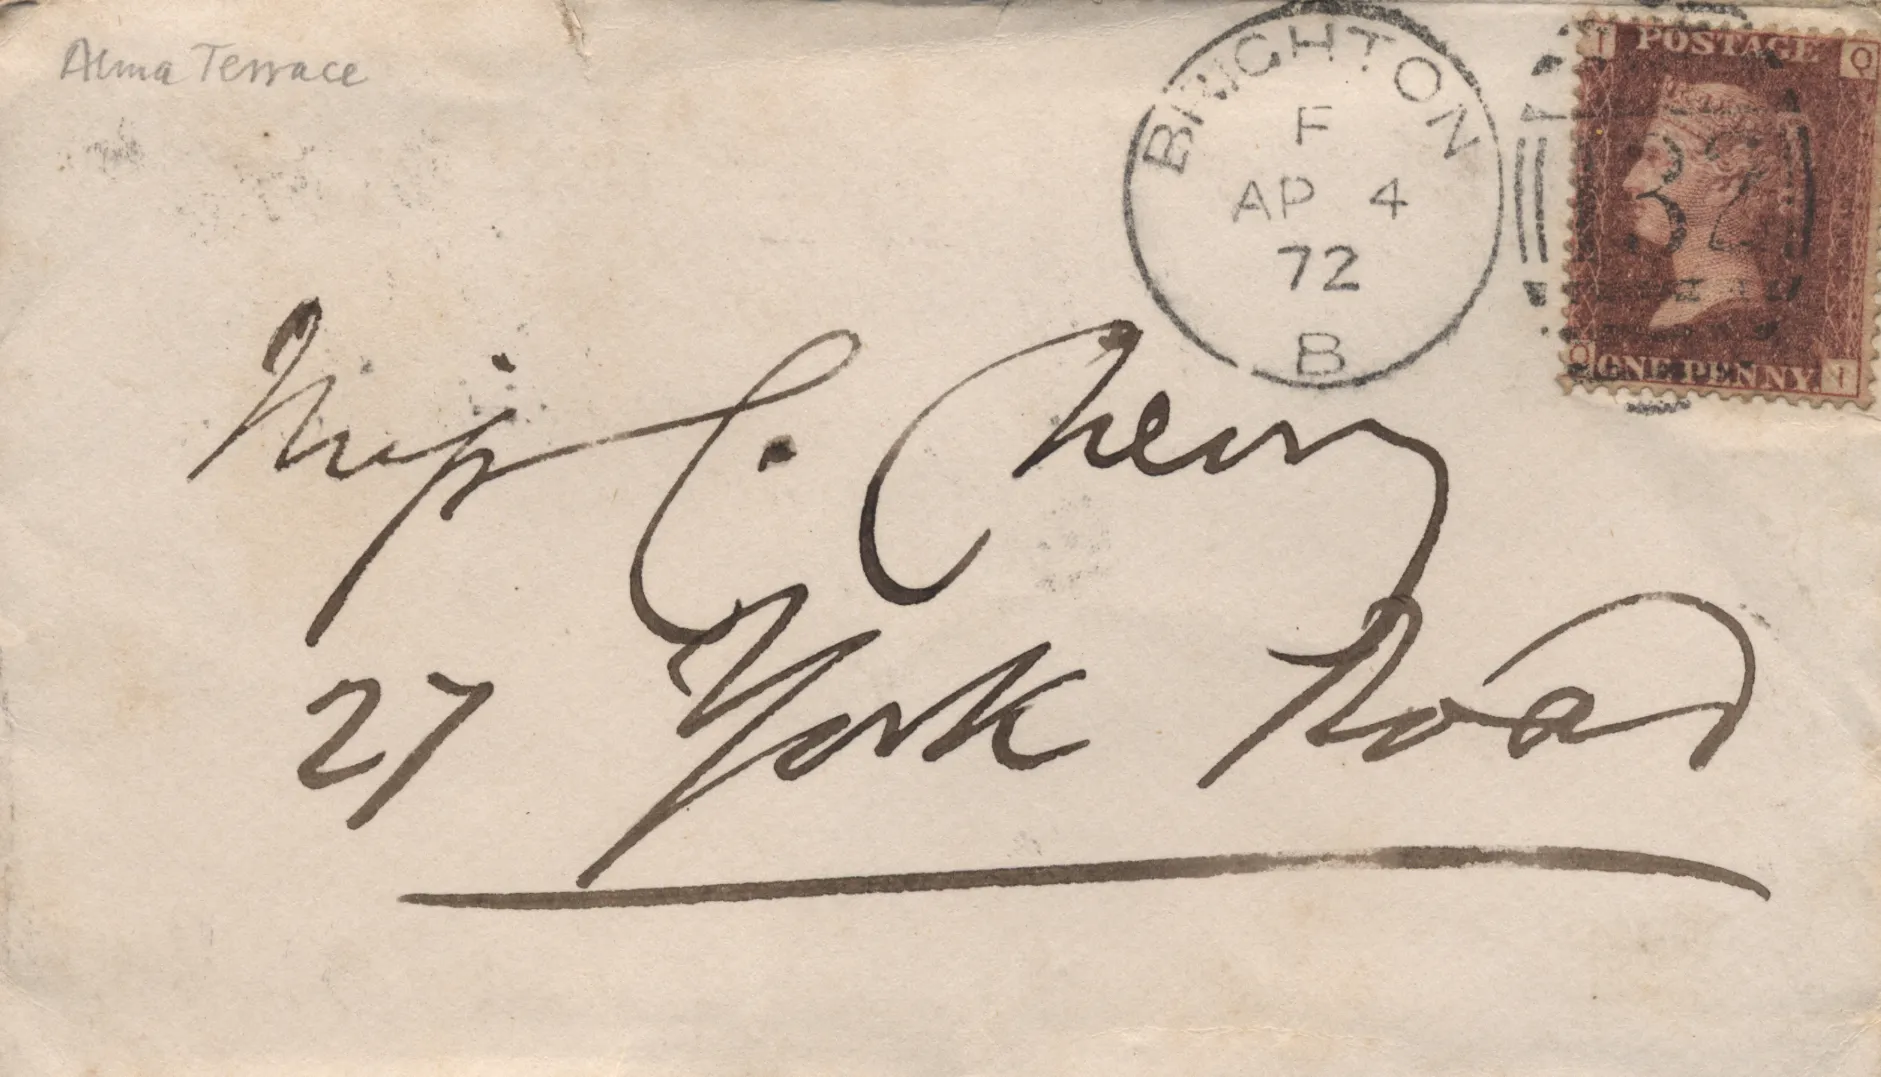 Alma Terrace
BRIGHTON
F
AP 4
72
B
I POSTAGE Q
132
Q ONE PENNY I
Miss C. Cherry
27 York Road